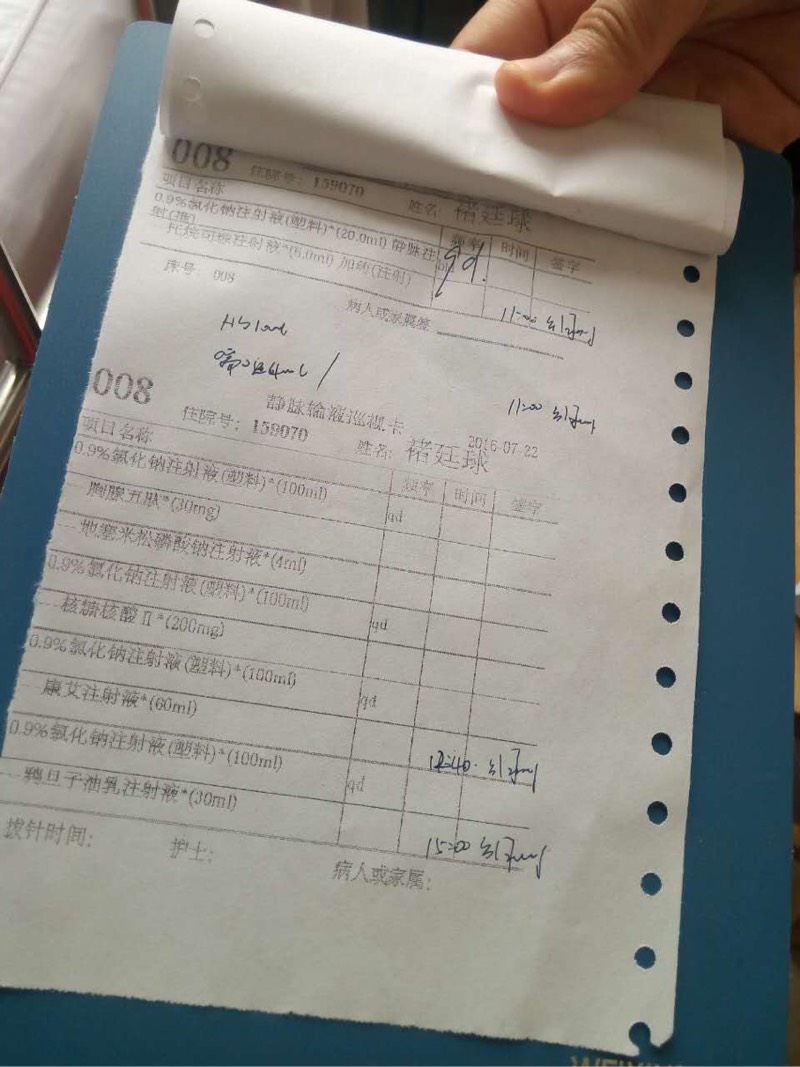 008 住院号：159070 姓名 褚廷球
项目名称 频率 时间 签字
0.9%氯化钠注射液(塑料)*(20.0ml) 静脉注
射(推) qd
托烷司琼注射液*(5.0ml) 加药(注射)
11:00
床号 008 病人或家属签
11:00
008 静脉输液巡视卡 2016-07-22
住院号：159070 姓名：褚廷球
项目名称 频率 时间 签字
0.9%氯化钠注射液(塑料)*(100ml)
胸腺五肽*(30mg) qd
地塞米松磷酸钠注射液*(4ml)
0.9%氯化钠注射液(塑料)*(100ml)
核糖核酸Ⅱ*(200mg) qd
0.9%氯化钠注射液(塑料)*(100ml)
康艾注射液*(60ml) qd
0.9%氯化钠注射液(塑料)*(100ml) 12:40
鸦旦子油乳注射液*(30ml) qd
15:00
拔针时间： 护士： 病人或家属：